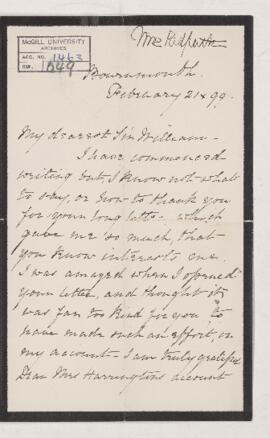 McGILL UNIVERSITY
ARCHIVES
ACC. NO. 1463
REF. 1049
Mrs Redpath
Bournemouth.
February 21st 99.
My dearest Sir William -
I have commenced
writing but I know not what
to say, or how to thank you
for your long letter - which
gave me so much, that
you know interests me.
I was amazed when I opened
your letter, and thought it
was far too kind for you to
have made such an effort, on
my account - I am truly grateful
Dear Mrs Harrington's account